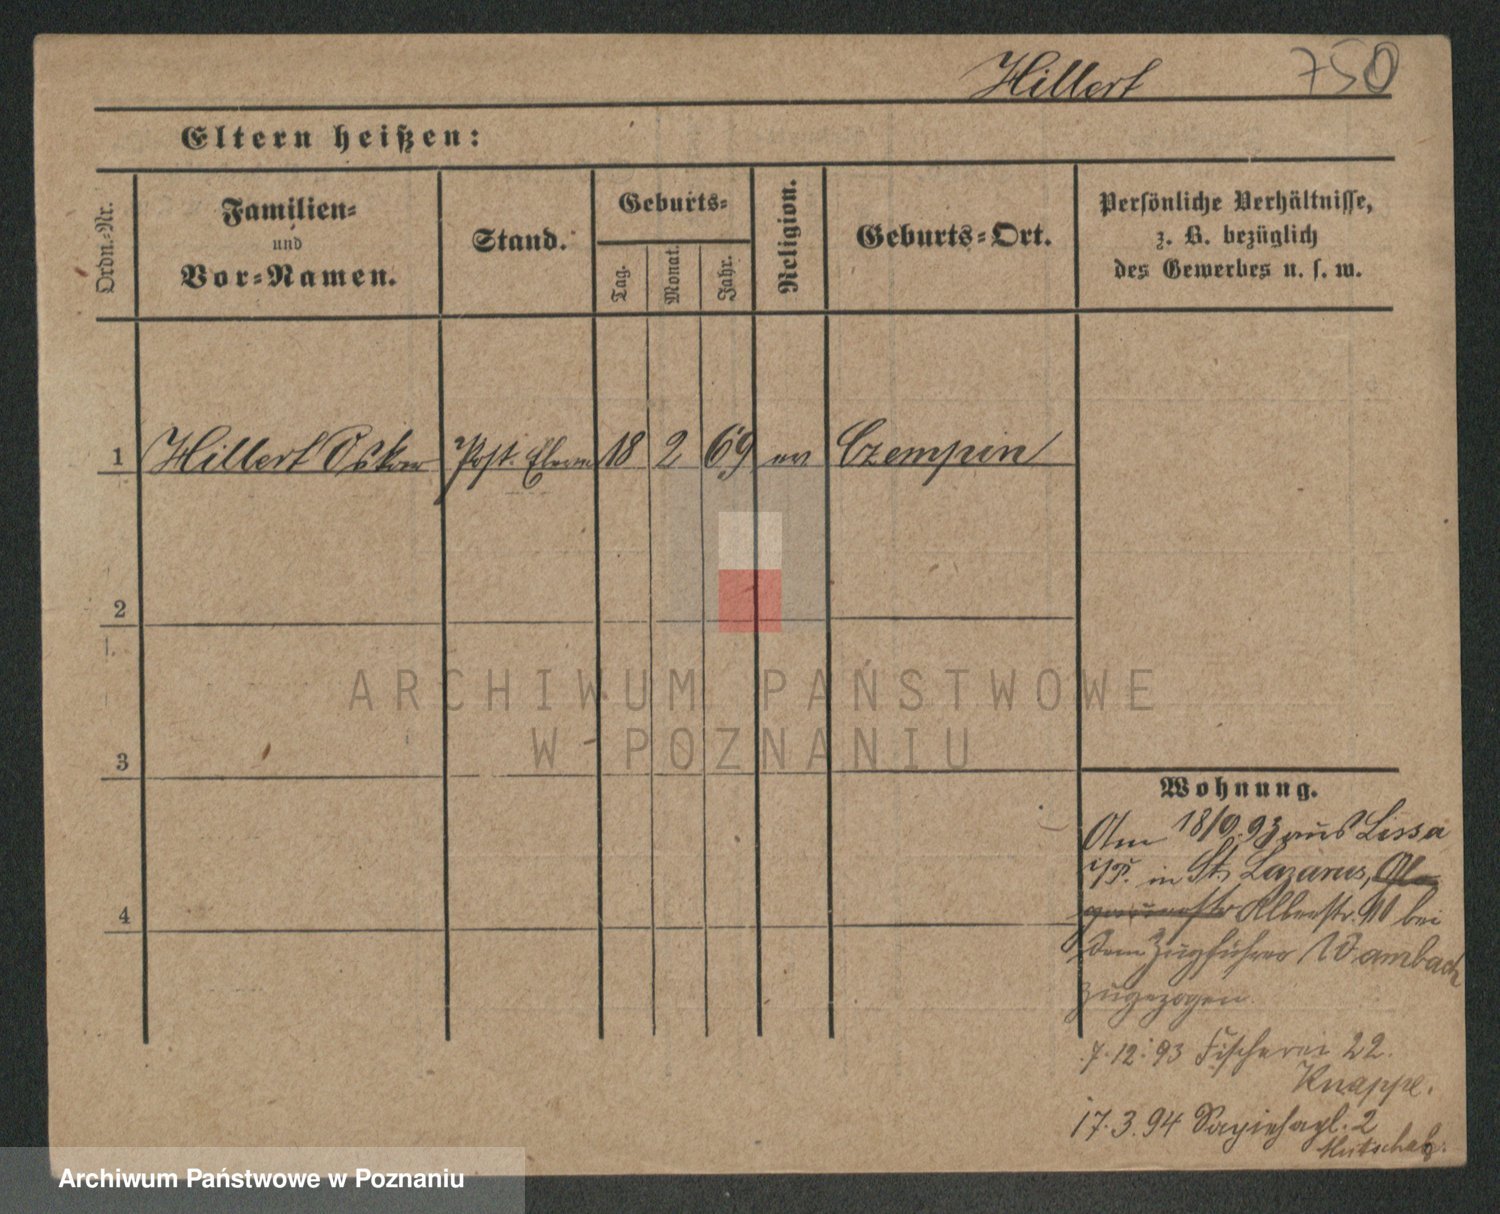 Hillert 750
Eltern heißen:
Ordn.-Nr.
Familien-
und
Vor-Namen.
Stand.
Geburts-
Tag.
Monat.
Jahr.
Religion.
Geburts-Ort.
Persönliche Verhältnisse,
z. B. bezüglich
des Gewerbes u. s. w.
1 Hillert Oskar Post. Eleve 18 2 69 ev Czempin
2
3
4
ARCHIWUM PAŃSTWOWE
W POZNANIU
Wohnung.
Am 18/9.93 aus Lissa
i/P. in St. Lazarus,
bei
dem Zugführer Wambach
zugezogen.
7.12.93 Fischerei 22.
Knappe.
17.3.94 Sapiehapl. 2
Archiwum Państwowe w Poznaniu